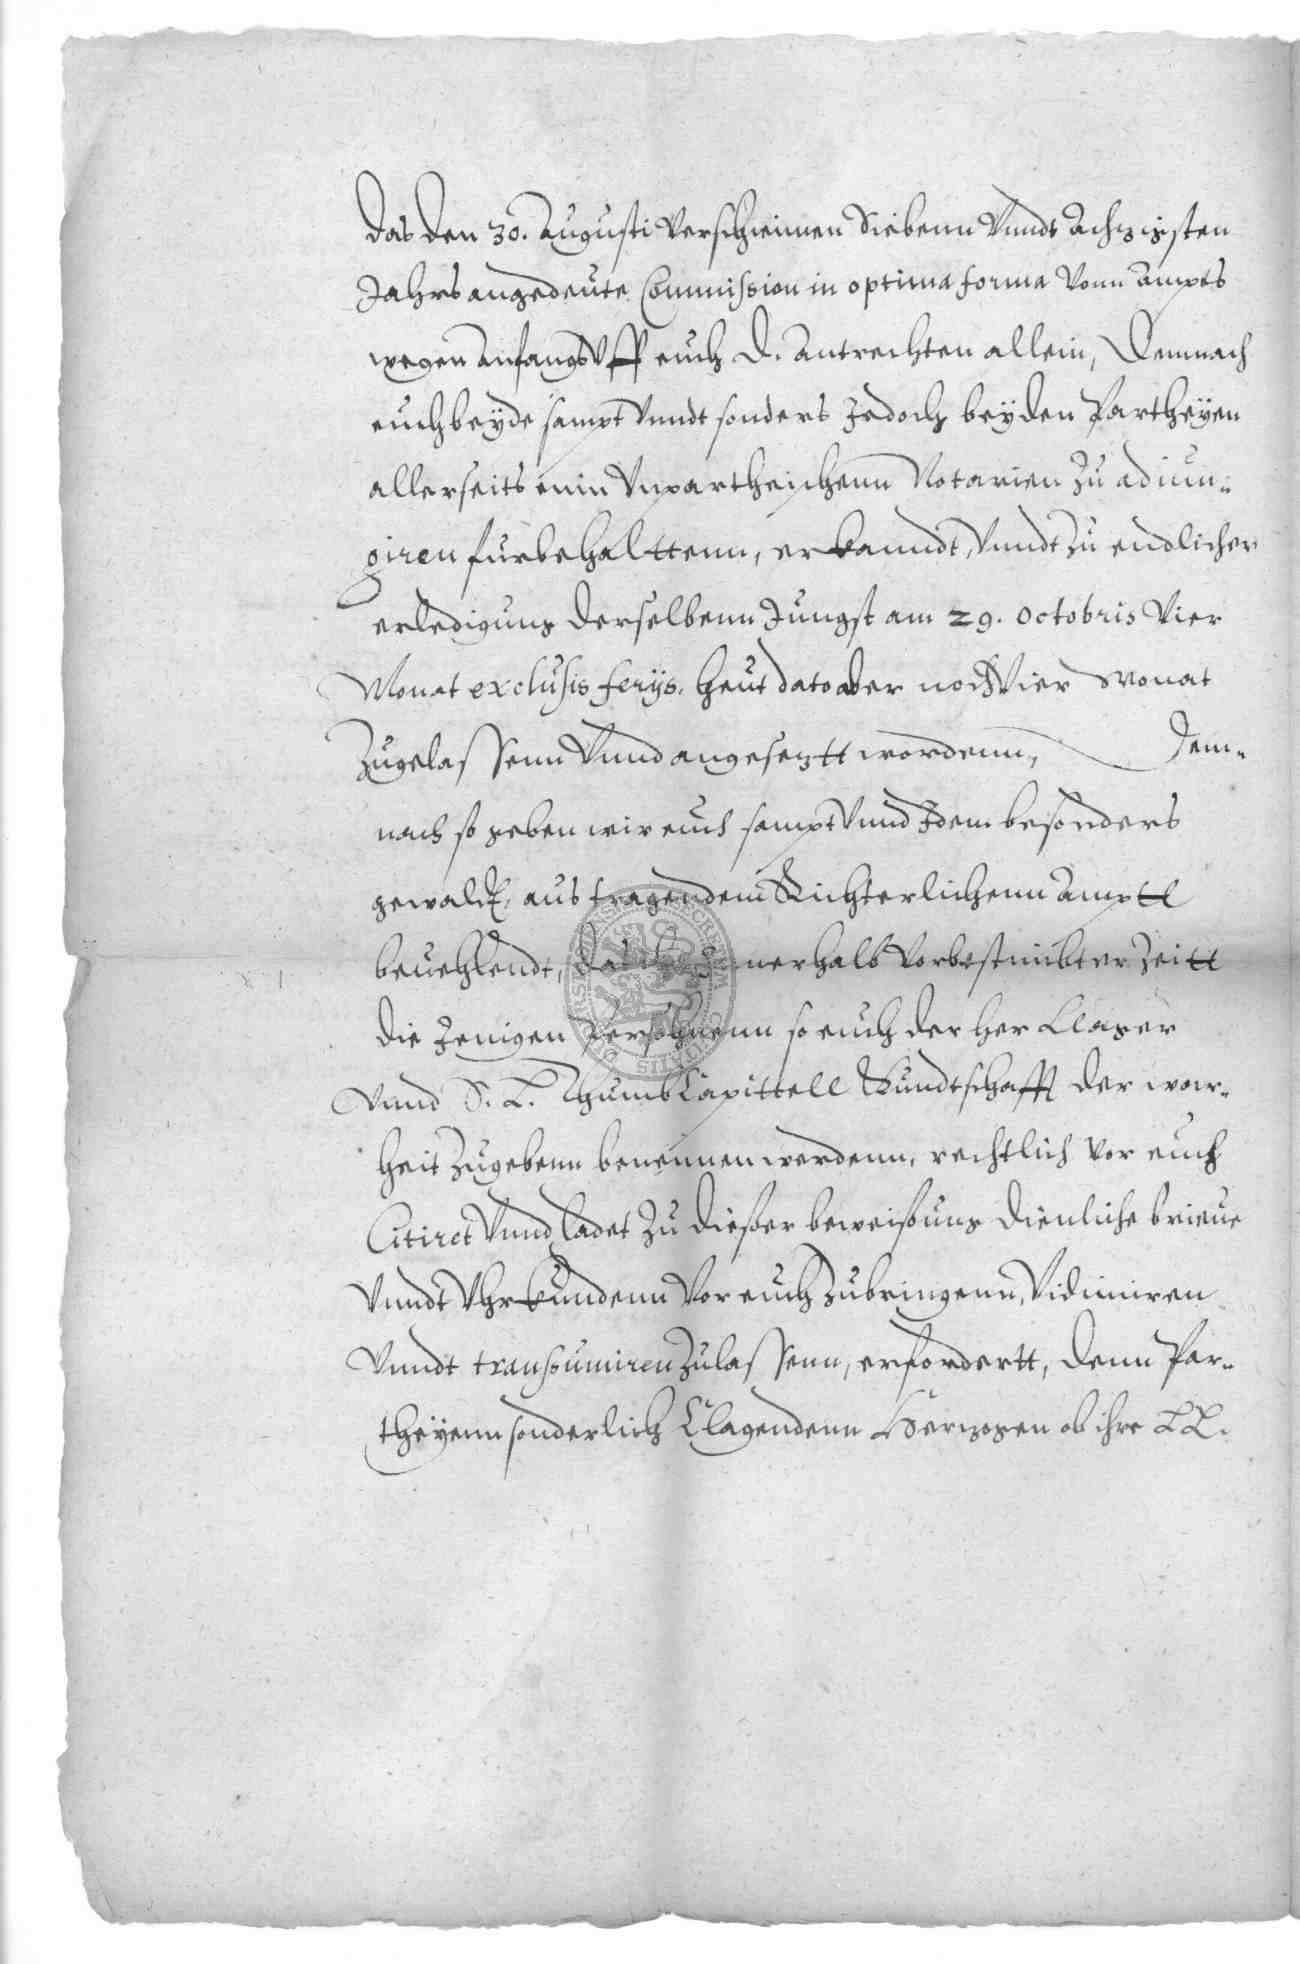 das den 30. Augusti verschienen Siebenn vnndt Achzigsten
Jahrs angedeute Commission in optima forma vonn Ampts
wegen Anfangs vff euch D. Antrechten allein, Demnach
euch beyde sampt vnndt sonders Jedoch beyden Partheyen
allerseits einn vnpartheischenn Notarien zu adiun-
giren furbehalttenn, erkanndt, vnndt zu endlicher
erledigung derselbenn Jungst am 29. Octobris vier
Monat exclusis ferijs, heut dato aber noch vier Monat
zugelassenn vnnd angesetztt wordenn, Dem-
nach so geben wir euch sampt vnnd Jdem besonders
gewaldt, aus tragendem Richterlichenn Amptt
beuehlendt, das Ihr Innerhalb vorbestimbter Zeitt
die Jenigen Persohnenn so euch der her Clager
vnnd S. L. ThumbCapittell Kundtschafft der war-
heit zugebenn benennen werdenn, rechtlich vor euch
Citiret vnnd ladet zu dießer beweißung dienliche brieue
vnndt Vhrkundenn vor euch zubringenn, Vidimiren
vnndt transsumiren zulassenn, erfordertt, denn Par-
theyenn sonderlich Clagendenn Herzogen ob ihre LL.